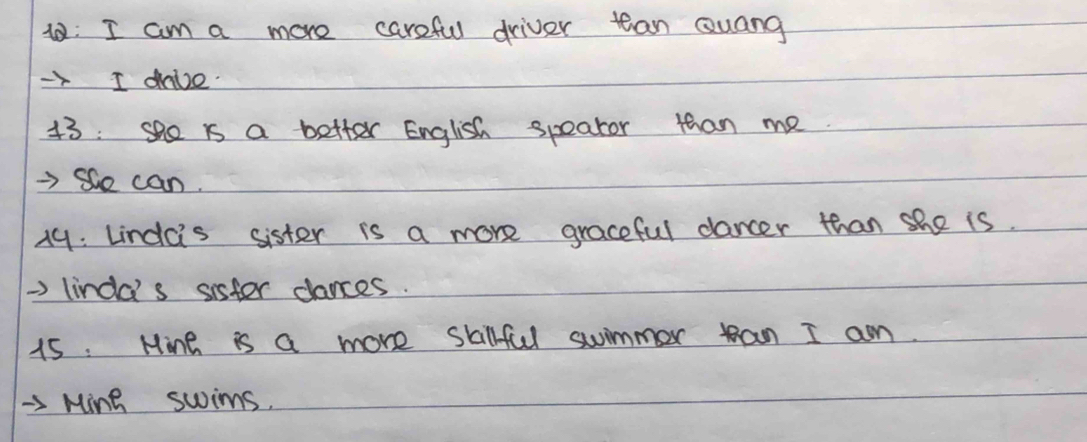 12: I am a more careful driver than Quang
→ I drive.
13: She is a better English speaker than me.
→ She can.
14. Linda's sister is a more graceful dancer than she is.
→ linda's sister dances.
15. Minh is a more skillful swimmer than I am.
→ Minh swims.